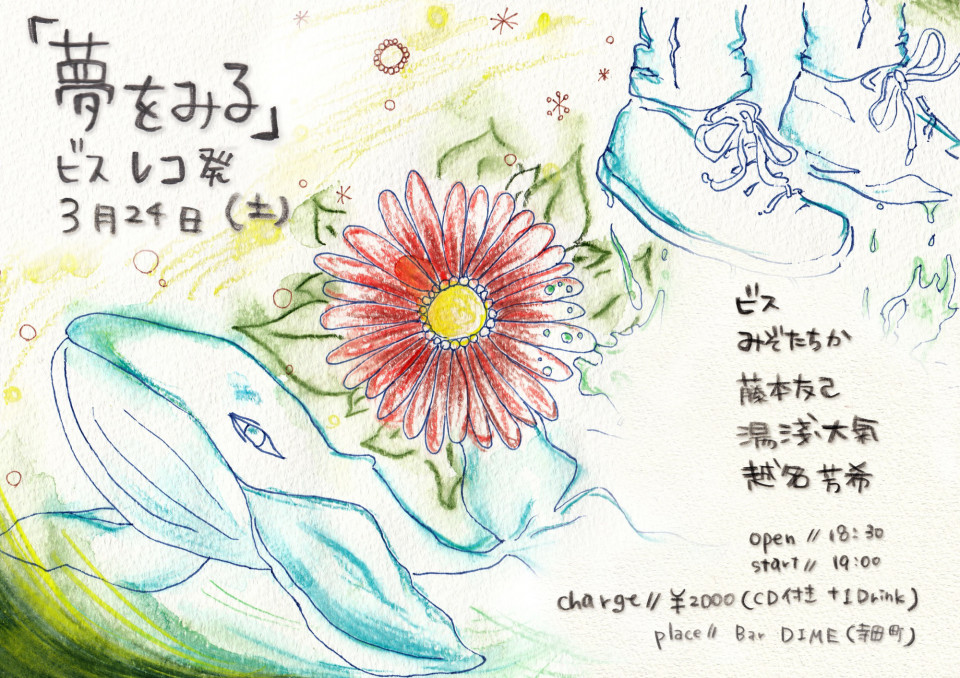 「夢をみる」
ビス レコ発
3月24日(土)
ビス
みぞたちか
藤本友己
湯浅大氣
越名芳希
open // 18:30
start // 19:00
charge // ¥2000 (CD付き +1Drink)
place // Bar DIME (寺田町)